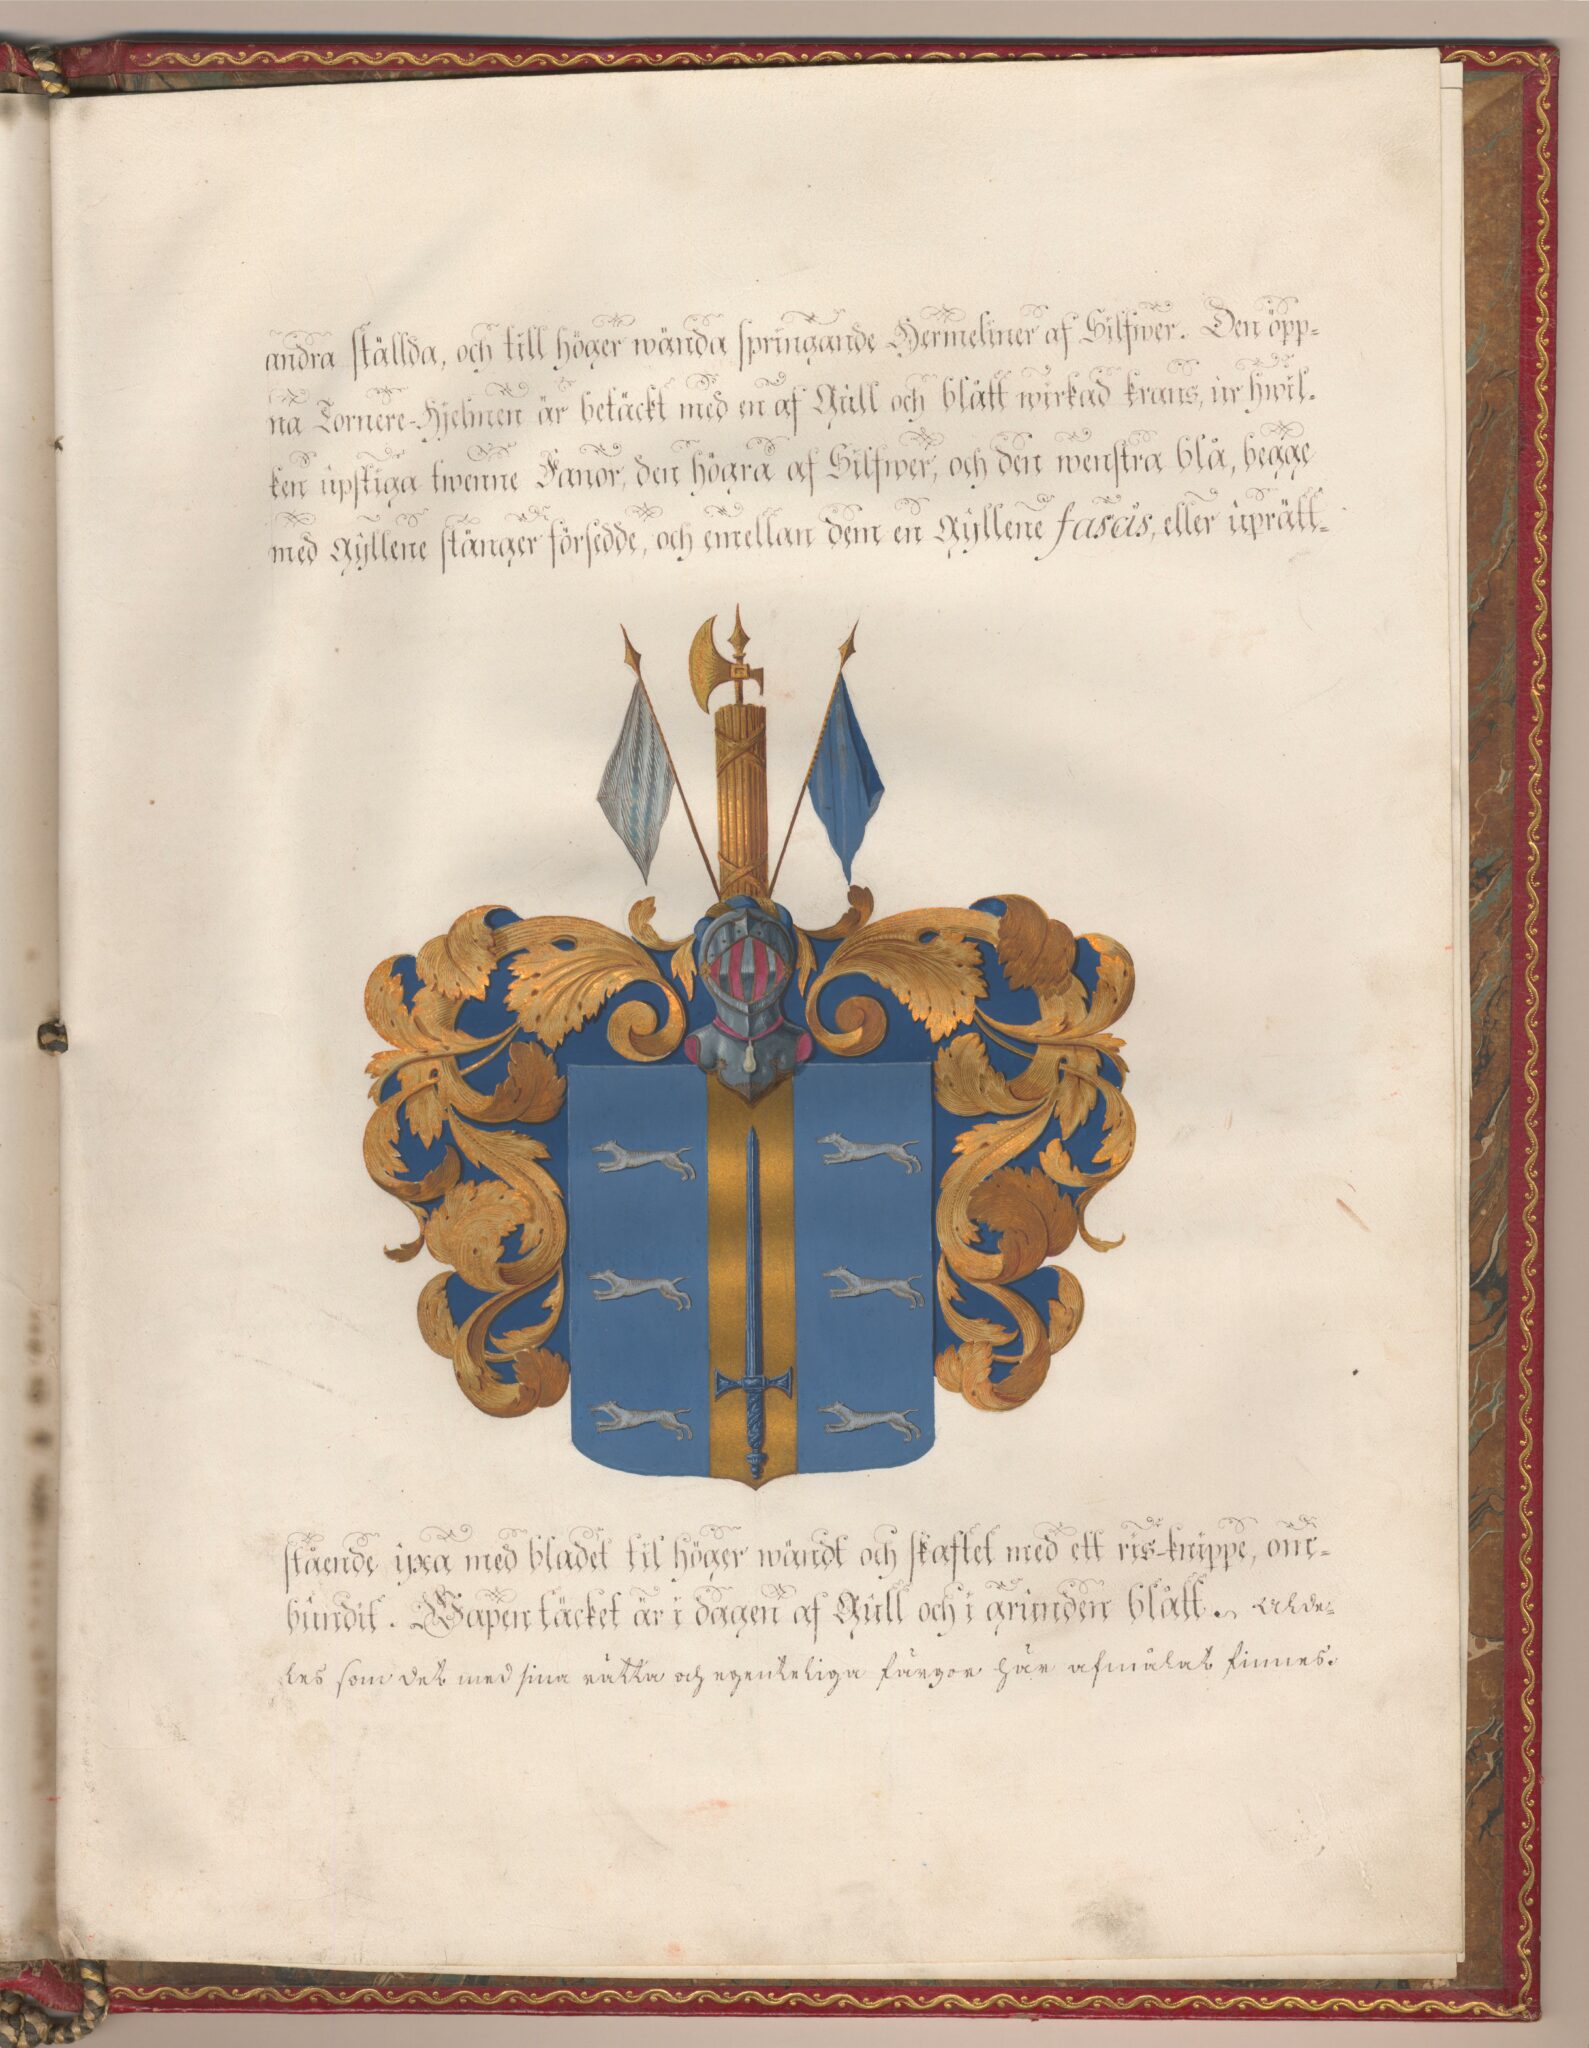 andra ställda, och till höger wända springande Hermeliner af Silfwer. Den öpp-
na Tornere-Hjelmen är betäckt med en af Gull och blått wirkad krans, ur hwil-
ken upstiga twenne Fanor, den högra af Silfwer, och den wenstra blå, begge
med Gyllene stänger försedde, och emellan dem en Gyllene fascis, eller uprätt-
stående yxa med bladet til höger wändt och skaftet med ett ris-knippe, om-
bundit. Wapentäcket är i dagen af Gull och i grunden blått. Alde-
les som det med sina rätta och egenteliga färgor här afmålat finnes.